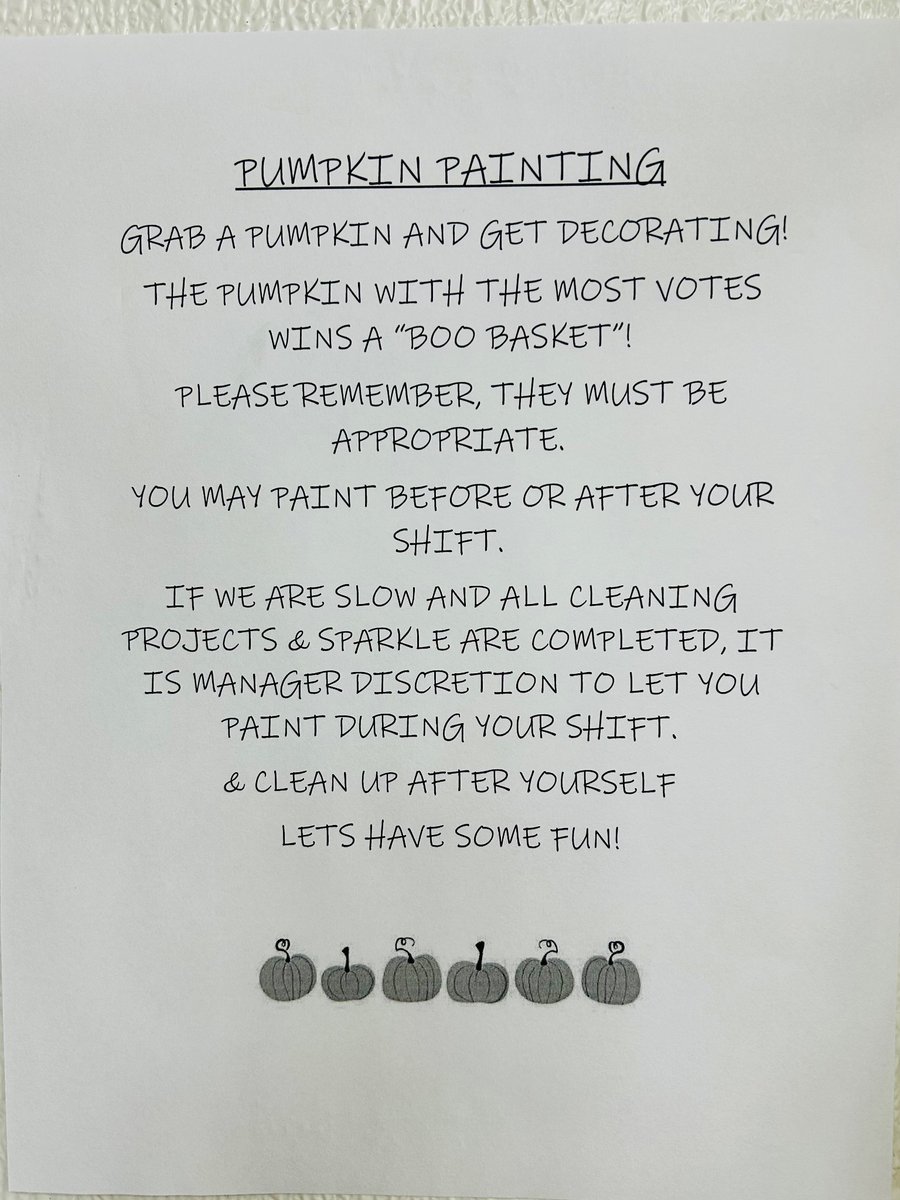 PUMPKIN PAINTING
GRAB A PUMPKIN AND GET DECORATING!
THE PUMPKIN WITH THE MOST VOTES
WINS A “BOO BASKET”!
PLEASE REMEMBER, THEY MUST BE
APPROPRIATE.
YOU MAY PAINT BEFORE OR AFTER YOUR
SHIFT.
IF WE ARE SLOW AND ALL CLEANING
PROJECTS & SPARKLE ARE COMPLETED, IT
IS MANAGER DISCRETION TO LET YOU
PAINT DURING YOUR SHIFT.
& CLEAN UP AFTER YOURSELF
LETS HAVE SOME FUN!